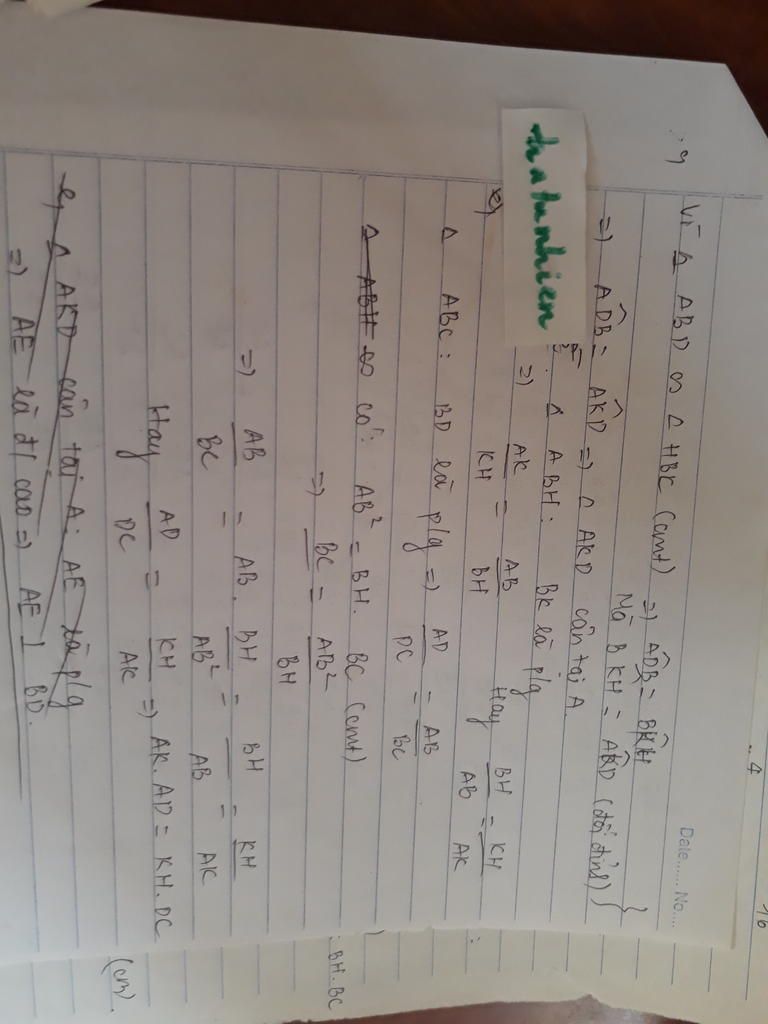 Date...... No....
Vì Δ ABD ∽ Δ HBK (cmt) => ADB^ = BKH^
Mà BKH = AKD^ (đối đỉnh) }
=> ADB^ = AKD^ => Δ AKD cân tại A.
hatunhien
Δ ABH: BK là p/g
=> AK/KH = AB/BH Hay BH/AB = KH/AK
Δ ABC: BD là p/g => AD/DC = AB/BC
Δ ABH ∽ có: AB² = BH. BC (cmt)
=> BC = AB²/BH
=> AB/BC = AB. BH/AB² = BH/AB = KH/AK
Hay AD/DC = KH/AK => AK. AD = KH. DC
(cm).
e, Δ AKD cân tại A: AE là p/g
=> AE là đ/ cao => AE ⊥ BD.
BH. BC